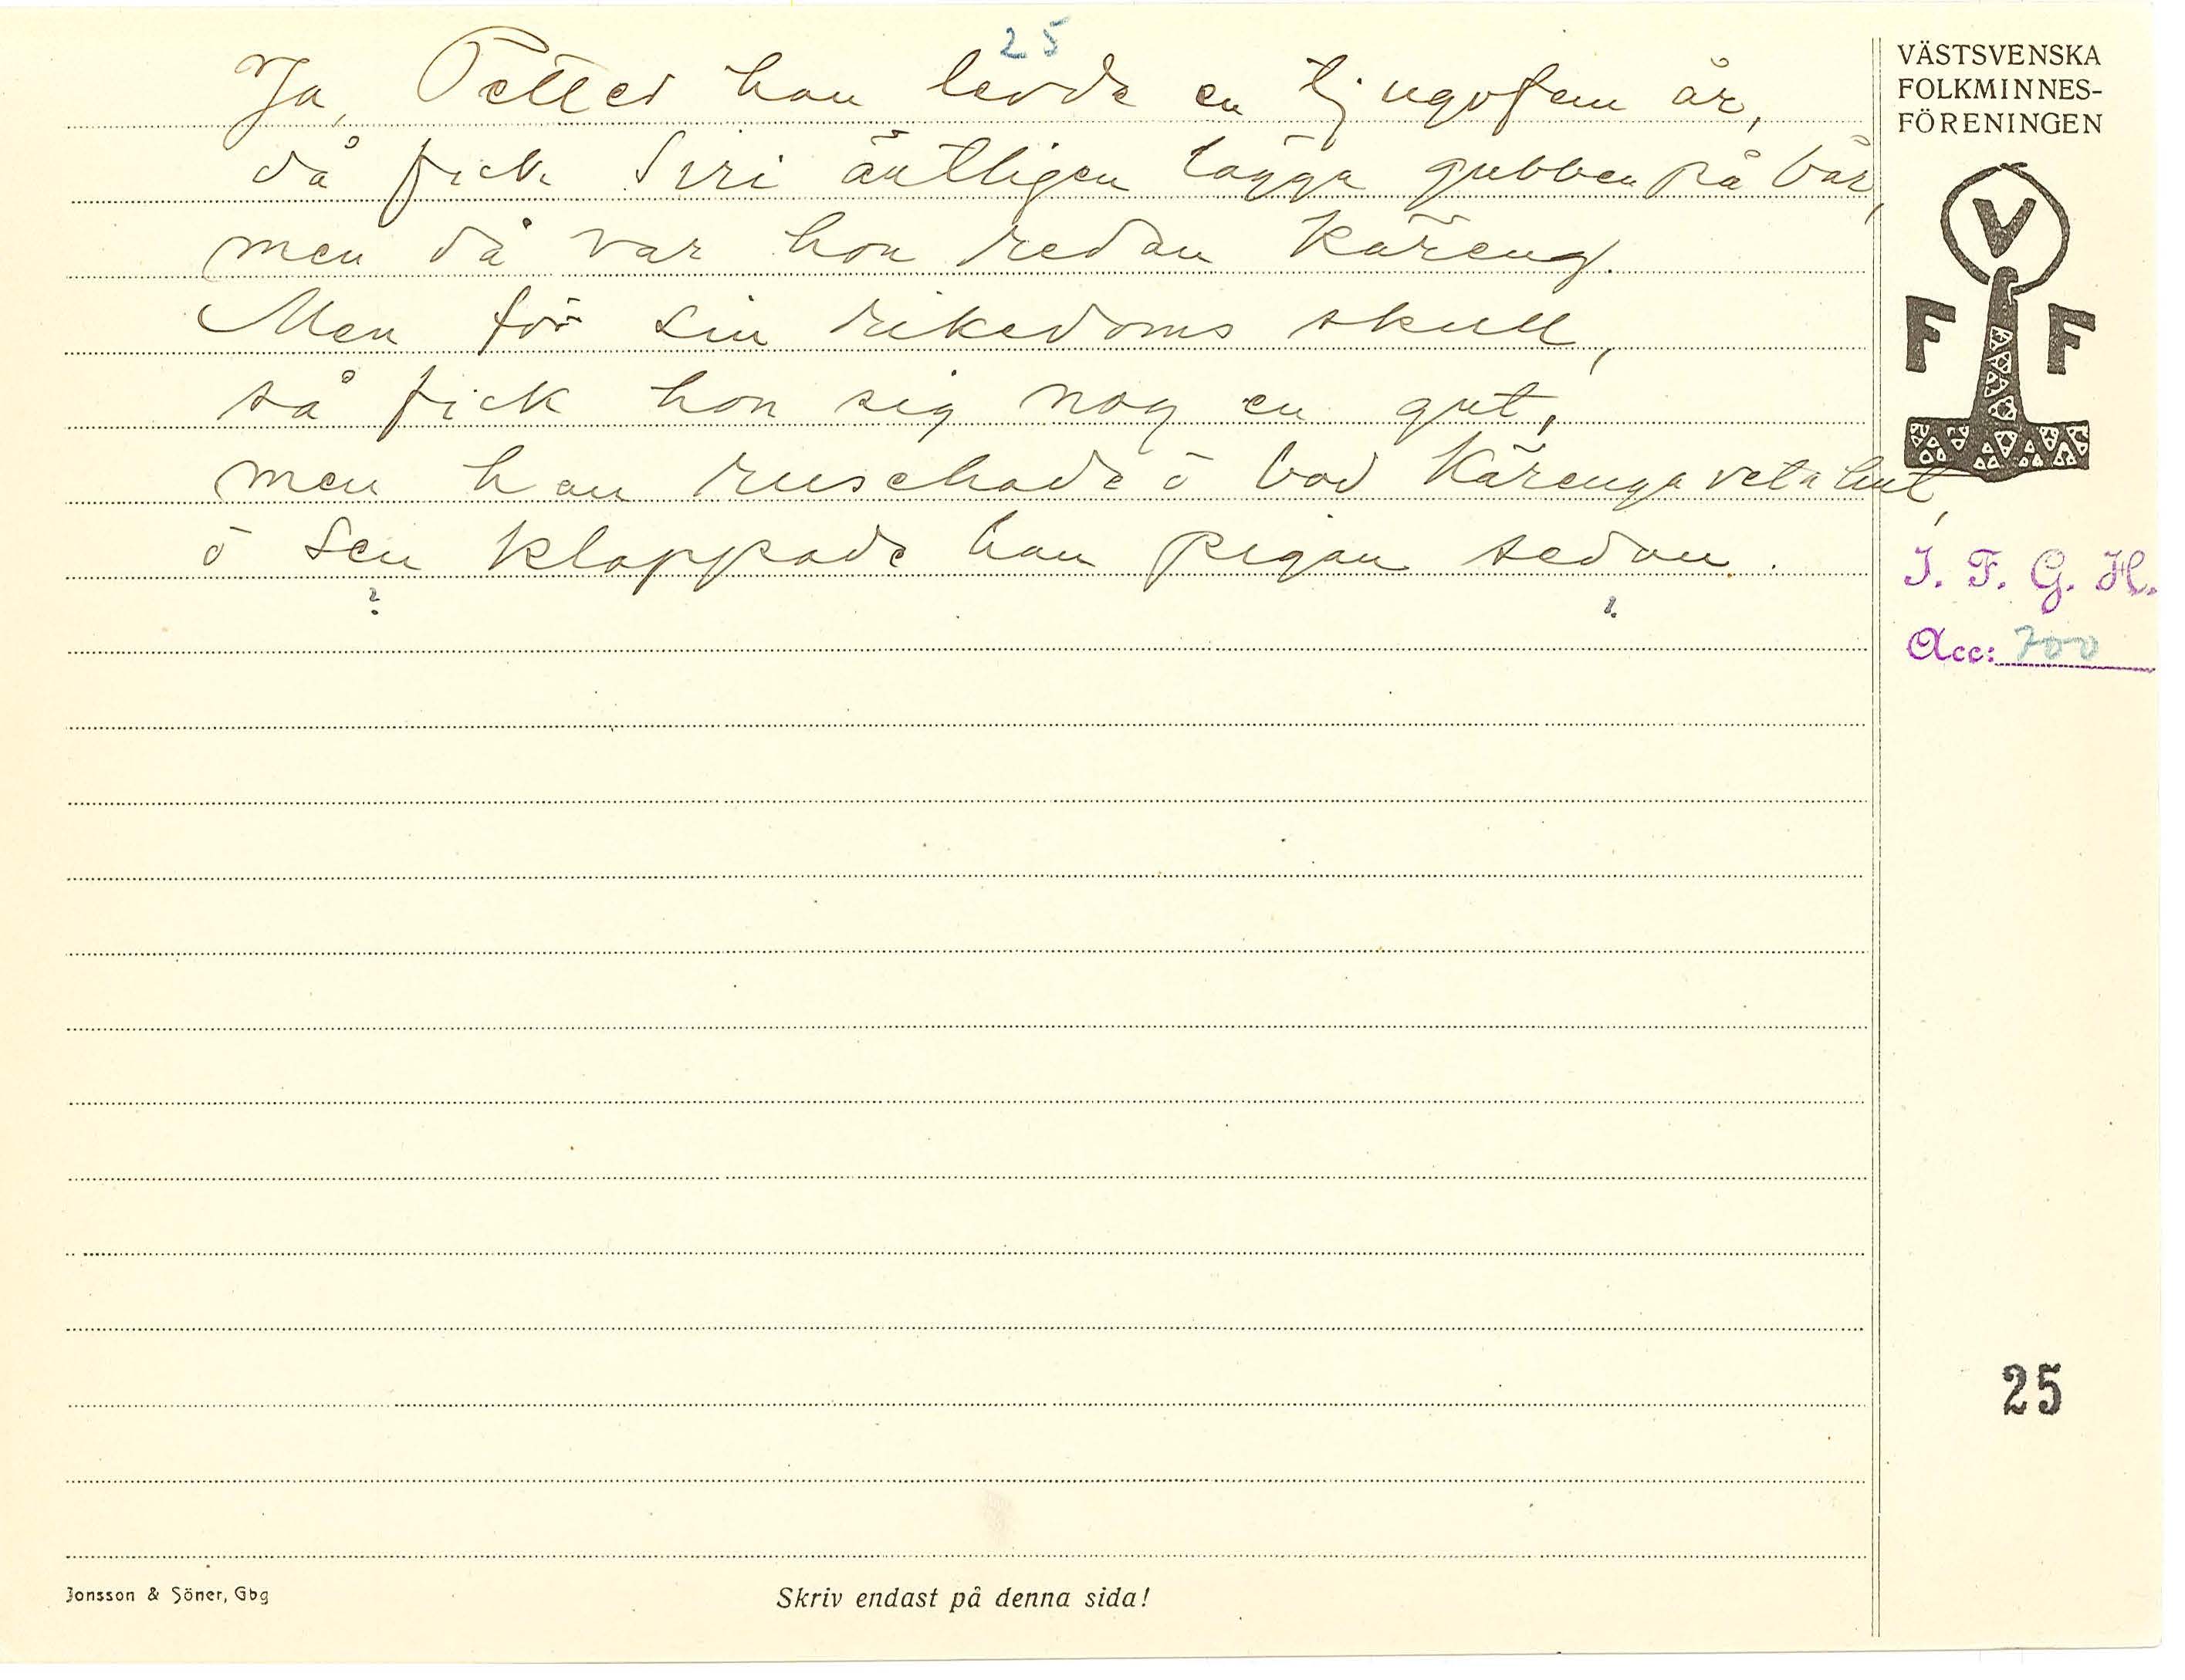 25
Ja, Petter han levde en tjugofem år,
då fick Siri äntligen lägga gubben på bår,
men då var hon redan Käreng.
Men för sin rikedoms skull,
så fick hon sig nog en gut,
men han ruschade ö bad Kärenga veta hut,
ö sen klappade han pigan sedan.
? ?
VÄSTSVENSKA
FOLKMINNES-
FÖRENINGEN
V
F F
I. F. G. H.
Acc: 700
25
Jonsson & Söner, Gbg
Skriv endast på denna sida!